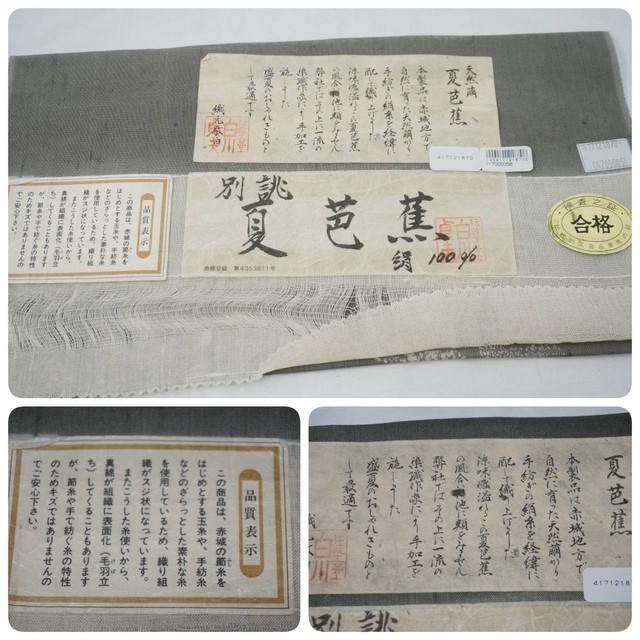 天然繭
夏芭蕉
本製品は赤城地方で
自然に育った天然繭から
手紡ぎの絹糸を経緯に
配して織り上げました
涼味溢れるこの夏芭蕉
の風合は他に類をみません
弊社ではその上に一流の
染織作家により手加工を
施しました
盛夏のおしゃれきものと
して最適です
織元 敬白
417121870
誂
別
夏芭蕉
絹 100%
商標登録 第4353811号
検査之証
合格
品質表示
この商品は、赤城の節糸を
はじめとする玉糸や、手紡糸
などのざらっとした素朴な糸
を使用しているため、織り組
織がスジ状になっています。
またこうした糸使いから、
真綿が組織に表面化(毛羽立
ち)してくることもあります
が、節糸や手で紡ぐ糸の特性
のためキズではありませんの
でご安心下さい。
品質表示
この商品は、赤城の節糸を
はじめとする玉糸や、手紡糸
などのざらっとした素朴な糸
を使用しているため、織り組
織がスジ状になっています。
またこうした糸使いから、
真綿が組織に表面化(毛羽立
ち)してくることもあります
が、節糸や手で紡ぐ糸の特性
のためキズではありませんの
でご安心下さい。
天然繭
夏芭蕉
本製品は赤城地方で
自然に育った天然繭から
手紡ぎの絹糸を経緯に
配して織り上げました
涼味溢れるこの夏芭蕉
の風合は他に類をみません
弊社ではその上に一流の
染織作家により手加工を
施しました
盛夏のおしゃれきものと
して最適です
4171218
誂
別